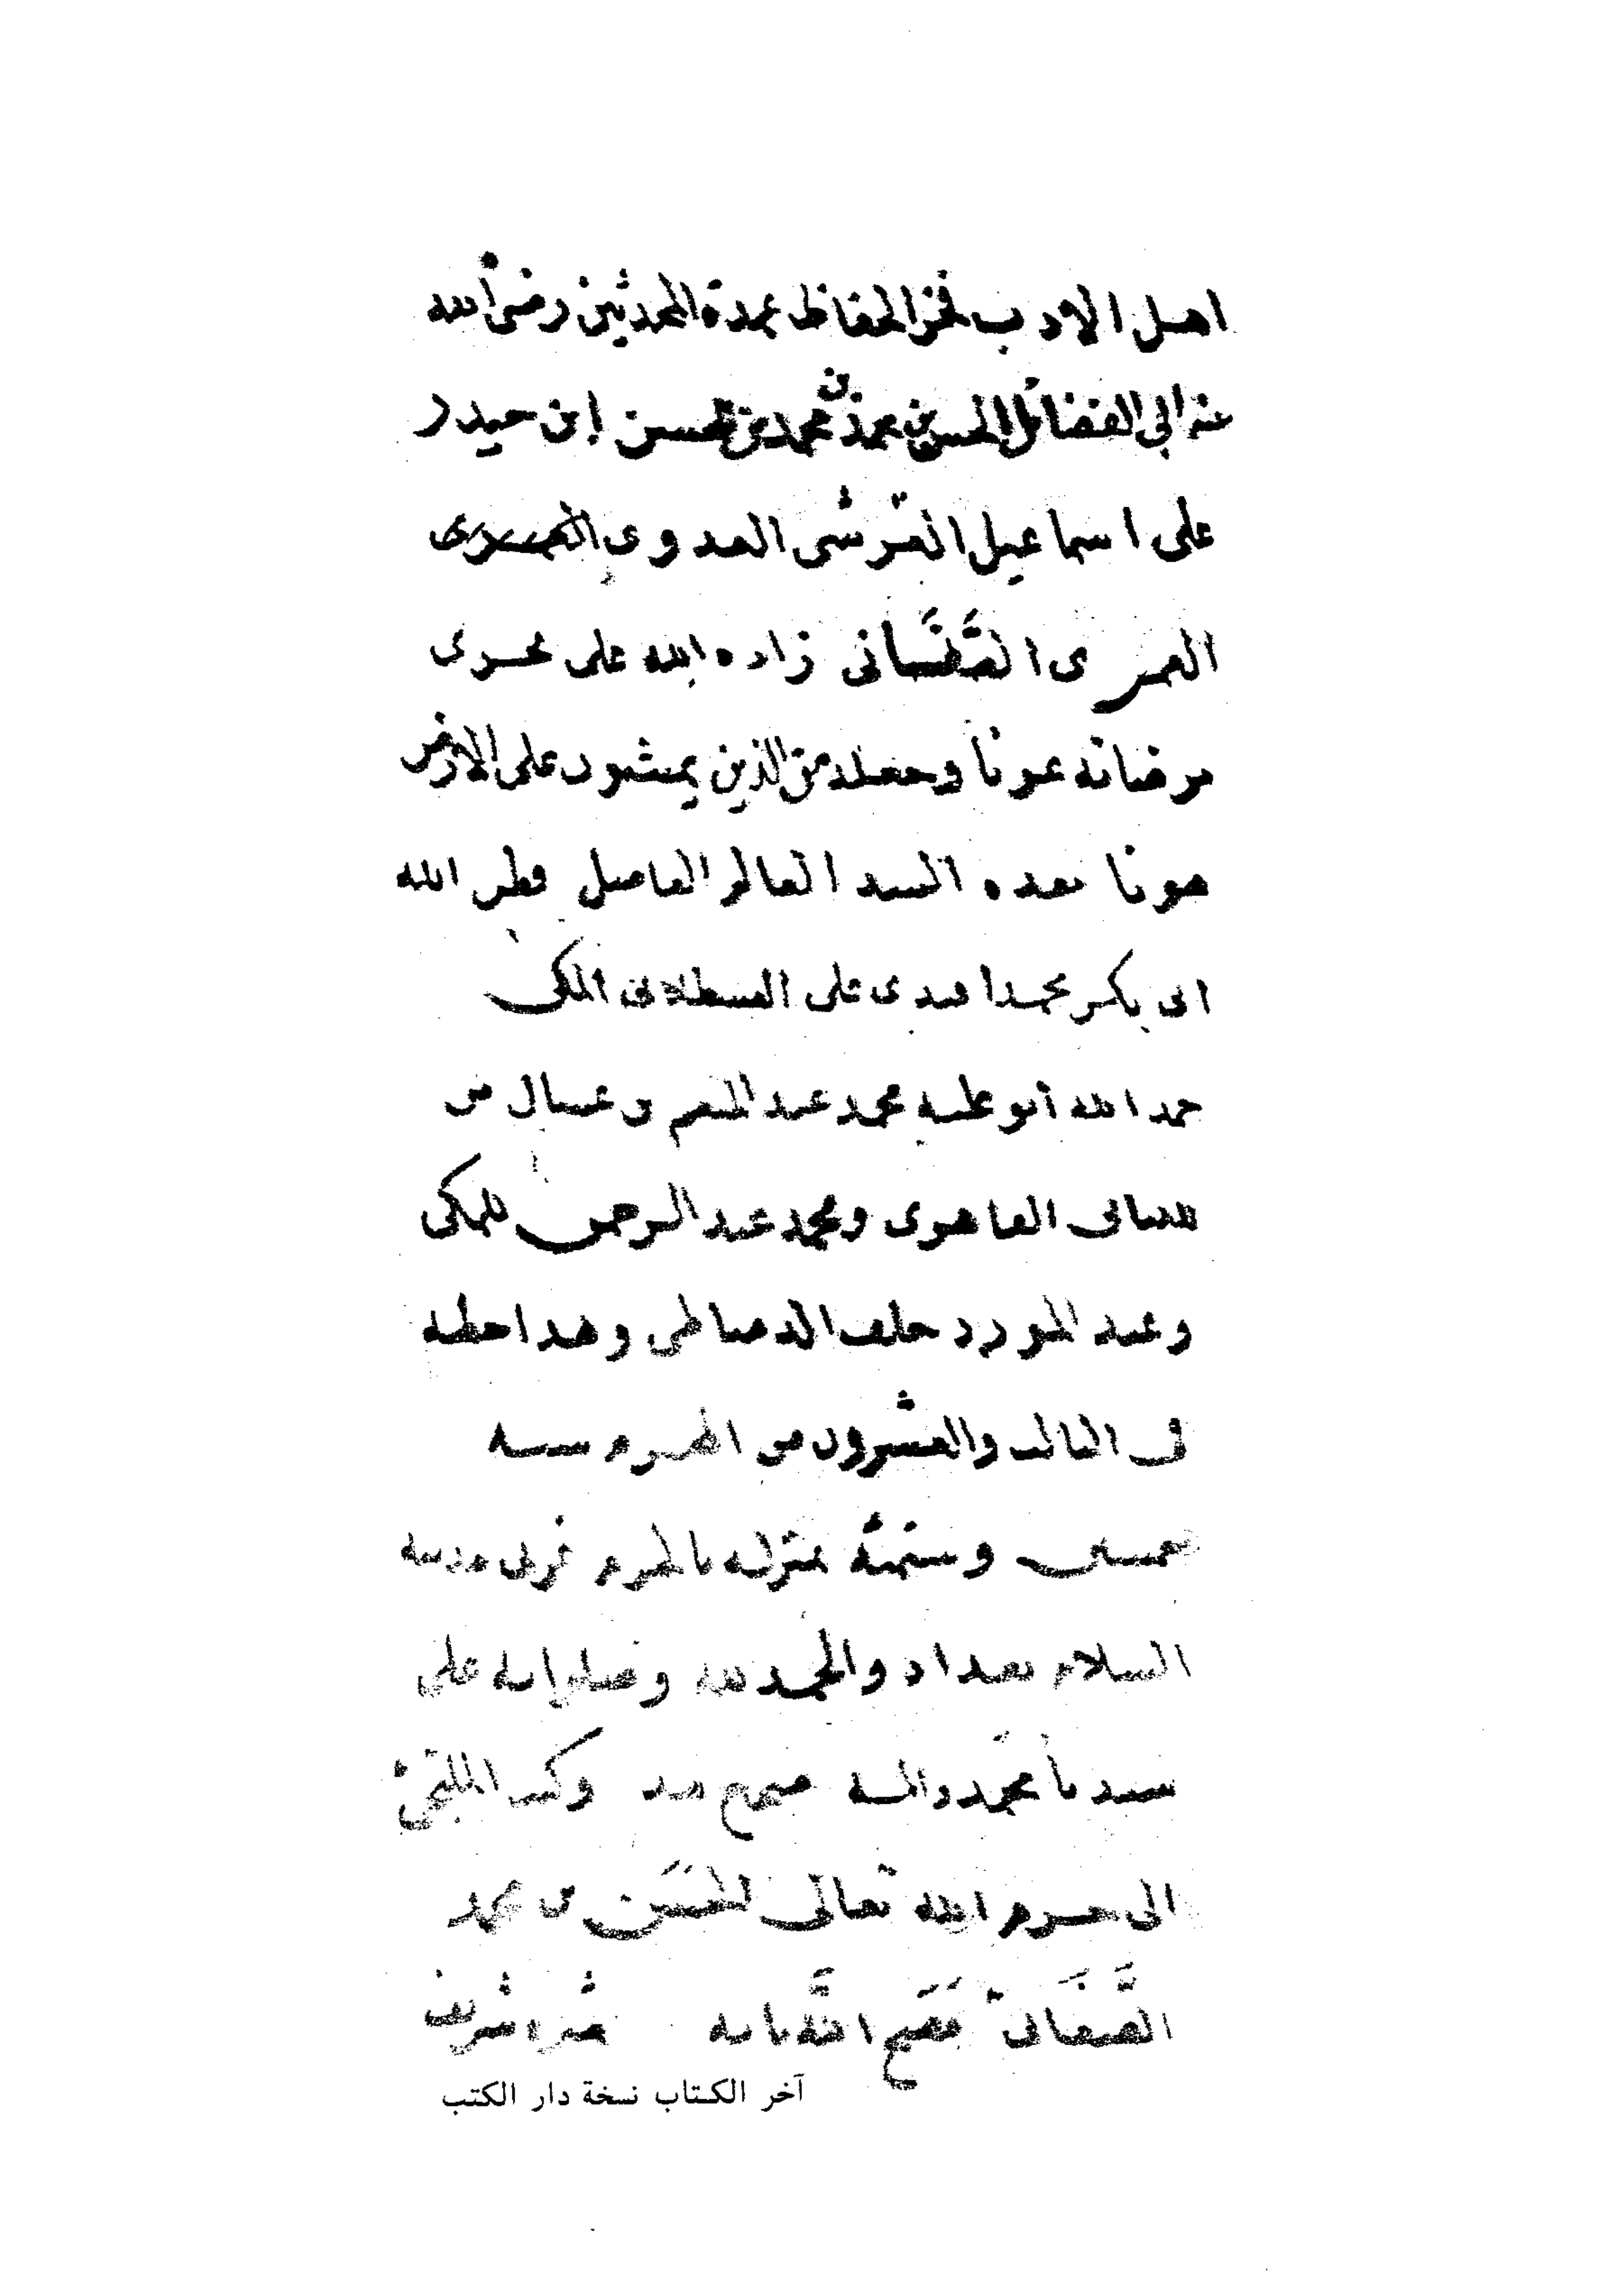 اهل الادب فخر الحفاظ عمدة المحدثين رضى الله
عنه ابي الفضائل الحسن بن محمد بن محمد بن الحسن ابن حيدر
على اسماعيل القرشى العدوى العمرى
العمرى الصغانى زاده الله على تحرى
مرضاته عونا وجعله من الذين يمشون على الارض
هونا بعده السيد العالم الفاضل قطر الله
ابى بكر محمد على القسطلانى المكى
حمد الله ابو محمد عبد المنعم من
القاهرى ومحمد عبد الرحمن المكى
وعبد خلف الدمياطى وهذا خطه
فى الثالث والعشرون من المحرم سنه
خمسين وستمئة بمنزله بالحريم غربى مدينة
السلام بغداد والحمد لله وصلواته على
سيدنا محمد واله صحيح وكتب الملتجئ
الى حرم الله تعالى الحسن بن محمد
الصغانى الله
آخر الكتاب نسخة دار الكتب